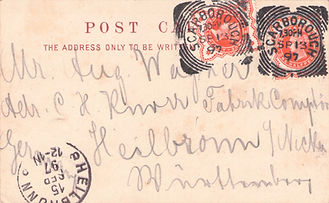 POST CARD
THE ADDRESS ONLY TO BE WRITTEN
SCARBOROUGH
7.30PM
SP 13
97
SCARBOROUGH
7.30PM
SP 13
97
Mr. Aug. Wagner
adr. C. H. Knorr Fabrik
Heilbronn a/Neckar
Württemberg
HEILBRONN
15
SEP
97
12-1N